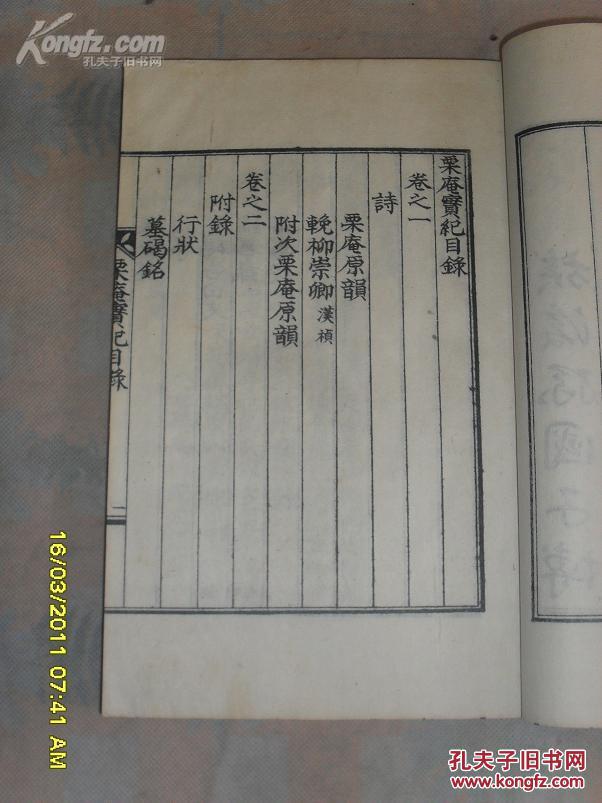 Kongfz.com
孔夫子旧书网
栗庵實紀目錄
卷之一
詩
栗庵原韻
輓柳崇卿漢禎
附次栗庵原韻
卷之二
附錄
行狀
墓碣銘
栗庵實紀目錄
一
16/03/2011 07:41 AM
孔夫子旧书网
www.kongfz.com